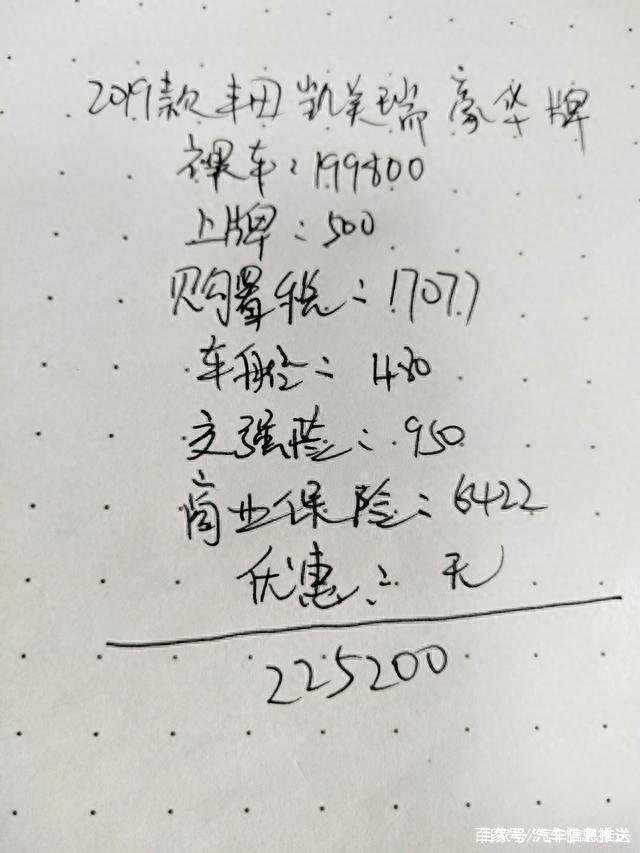 2019款丰田凯美瑞豪华牌
裸车：199800
上牌：500
购置税：17077
车船：480
交强险：950
商业保险：6422
优惠：无
225200
百家号/汽车信息推送